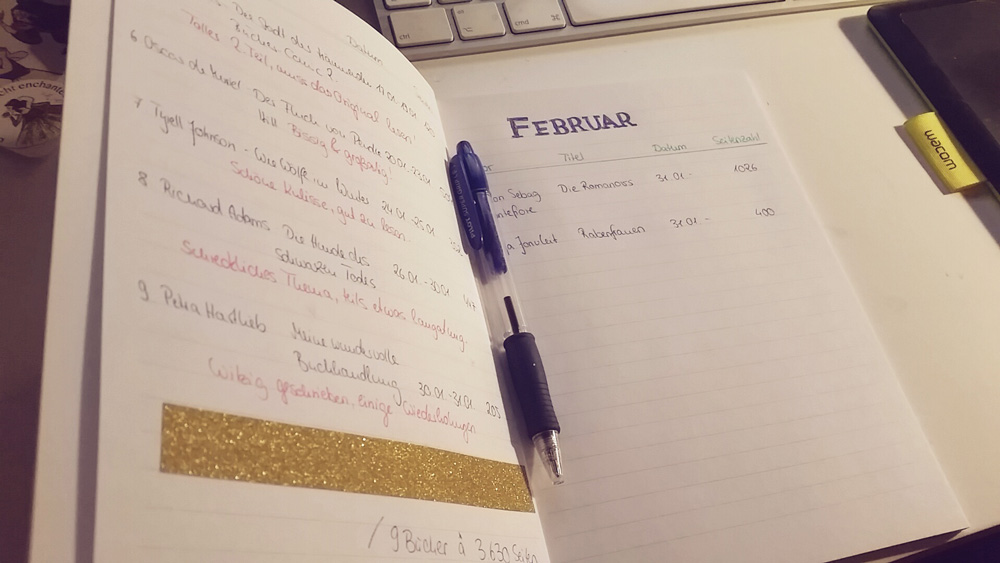 Datum
Die Stadt der träumenden 17.01. 19.01.
Bücher Comic 2
Tolles 2. Teil, muss das Original lesen!
6 Oscar de Muriel - Der Fluch von Pendle 20.01.-23.01.
Hill Bissig & großartig!
7 Tyrell Johnson - Wie Wölfe im Winter 24.01.-25.01.
Schöne Kulisse, gut zu lesen.
8 Richard Adams Die Hunde des
schwarzen Todes 26.01.-30.01. 447
Schreckliches Thema, teils etwas langatmig.
9 Petra Hartlieb Meine wundervolle
Buchhandlung 30.01.-31.01. 205
Witzig geschrieben, einige Wiederholungen
/ 9 Bücher à 3630 Seiten
FEBRUAR
or Titel Datum Seitenzahl
on Sebag Die Romanows 31.01.- 1026
ntefiore
a Jonuleit Rabenfrauen 31.01.- 400
ctrl
cmd
wacom
cht enchanté